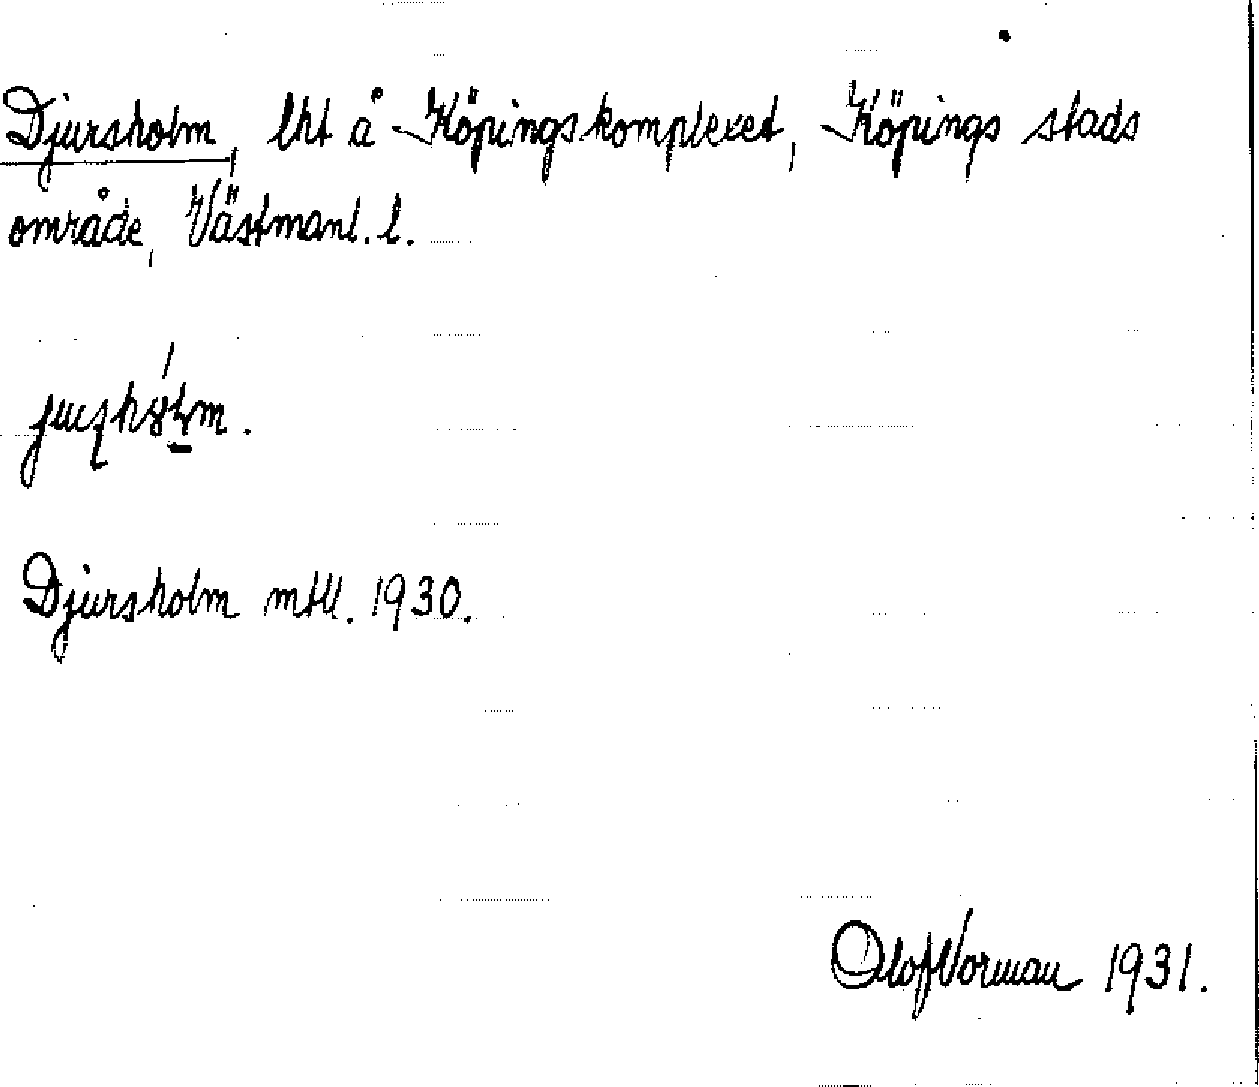 Djursholm, lht å Köpingskomplexet, Köpings stads
område, Västmanl. l.
Djursholm mtll. 1930.
Olof Vorman 1931.